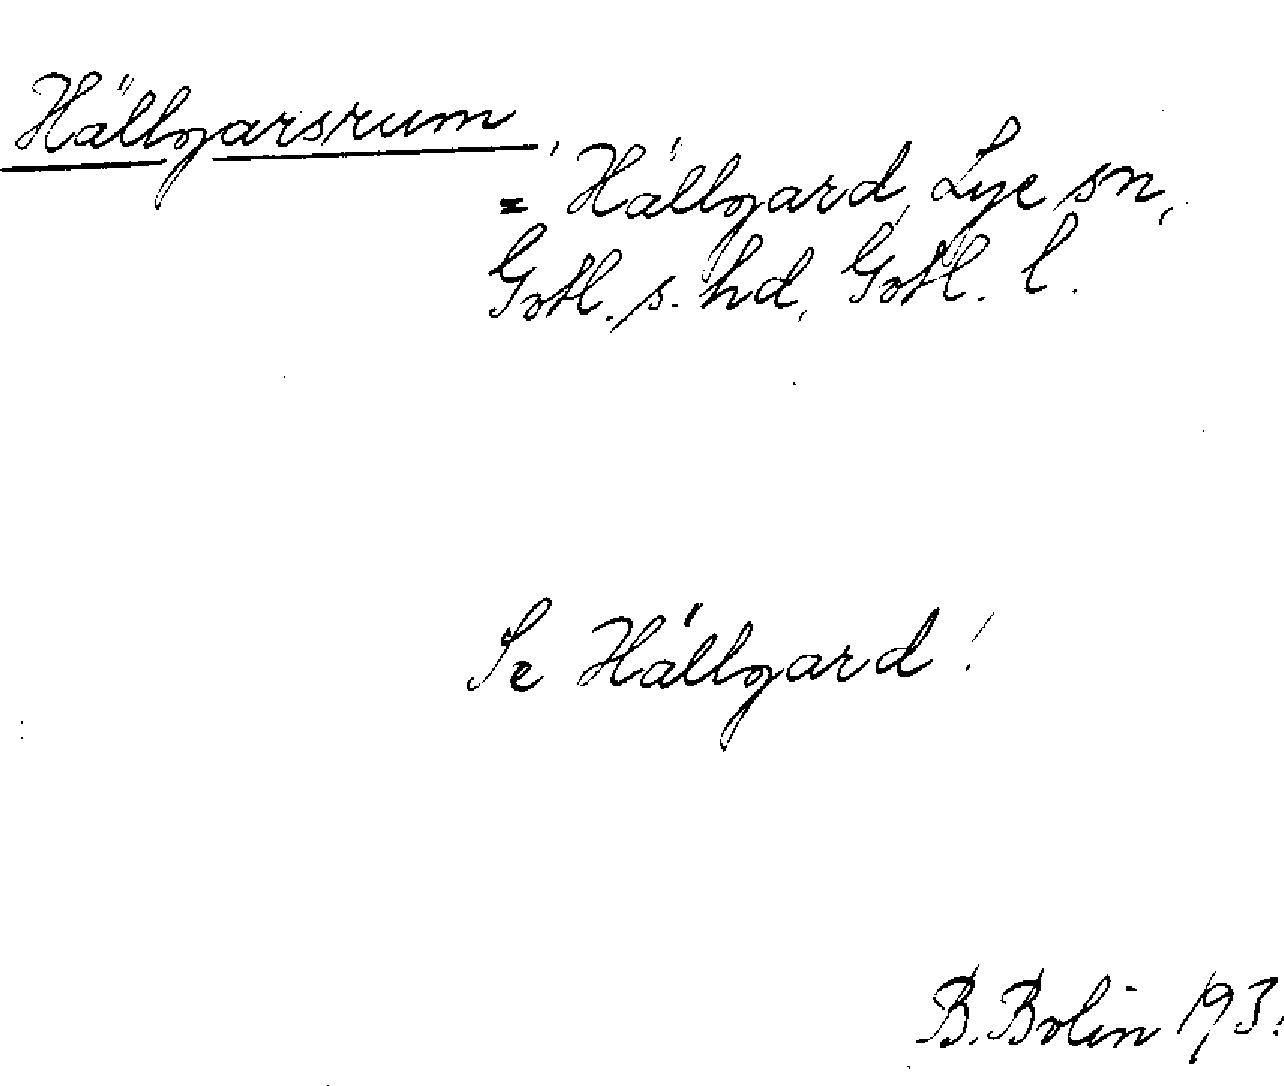 Hällgarsrum,
= Hällgard, Lye sn,
Gotl. s. hd, Gotl. l.
Se Hällgard!
B. Bolin 193